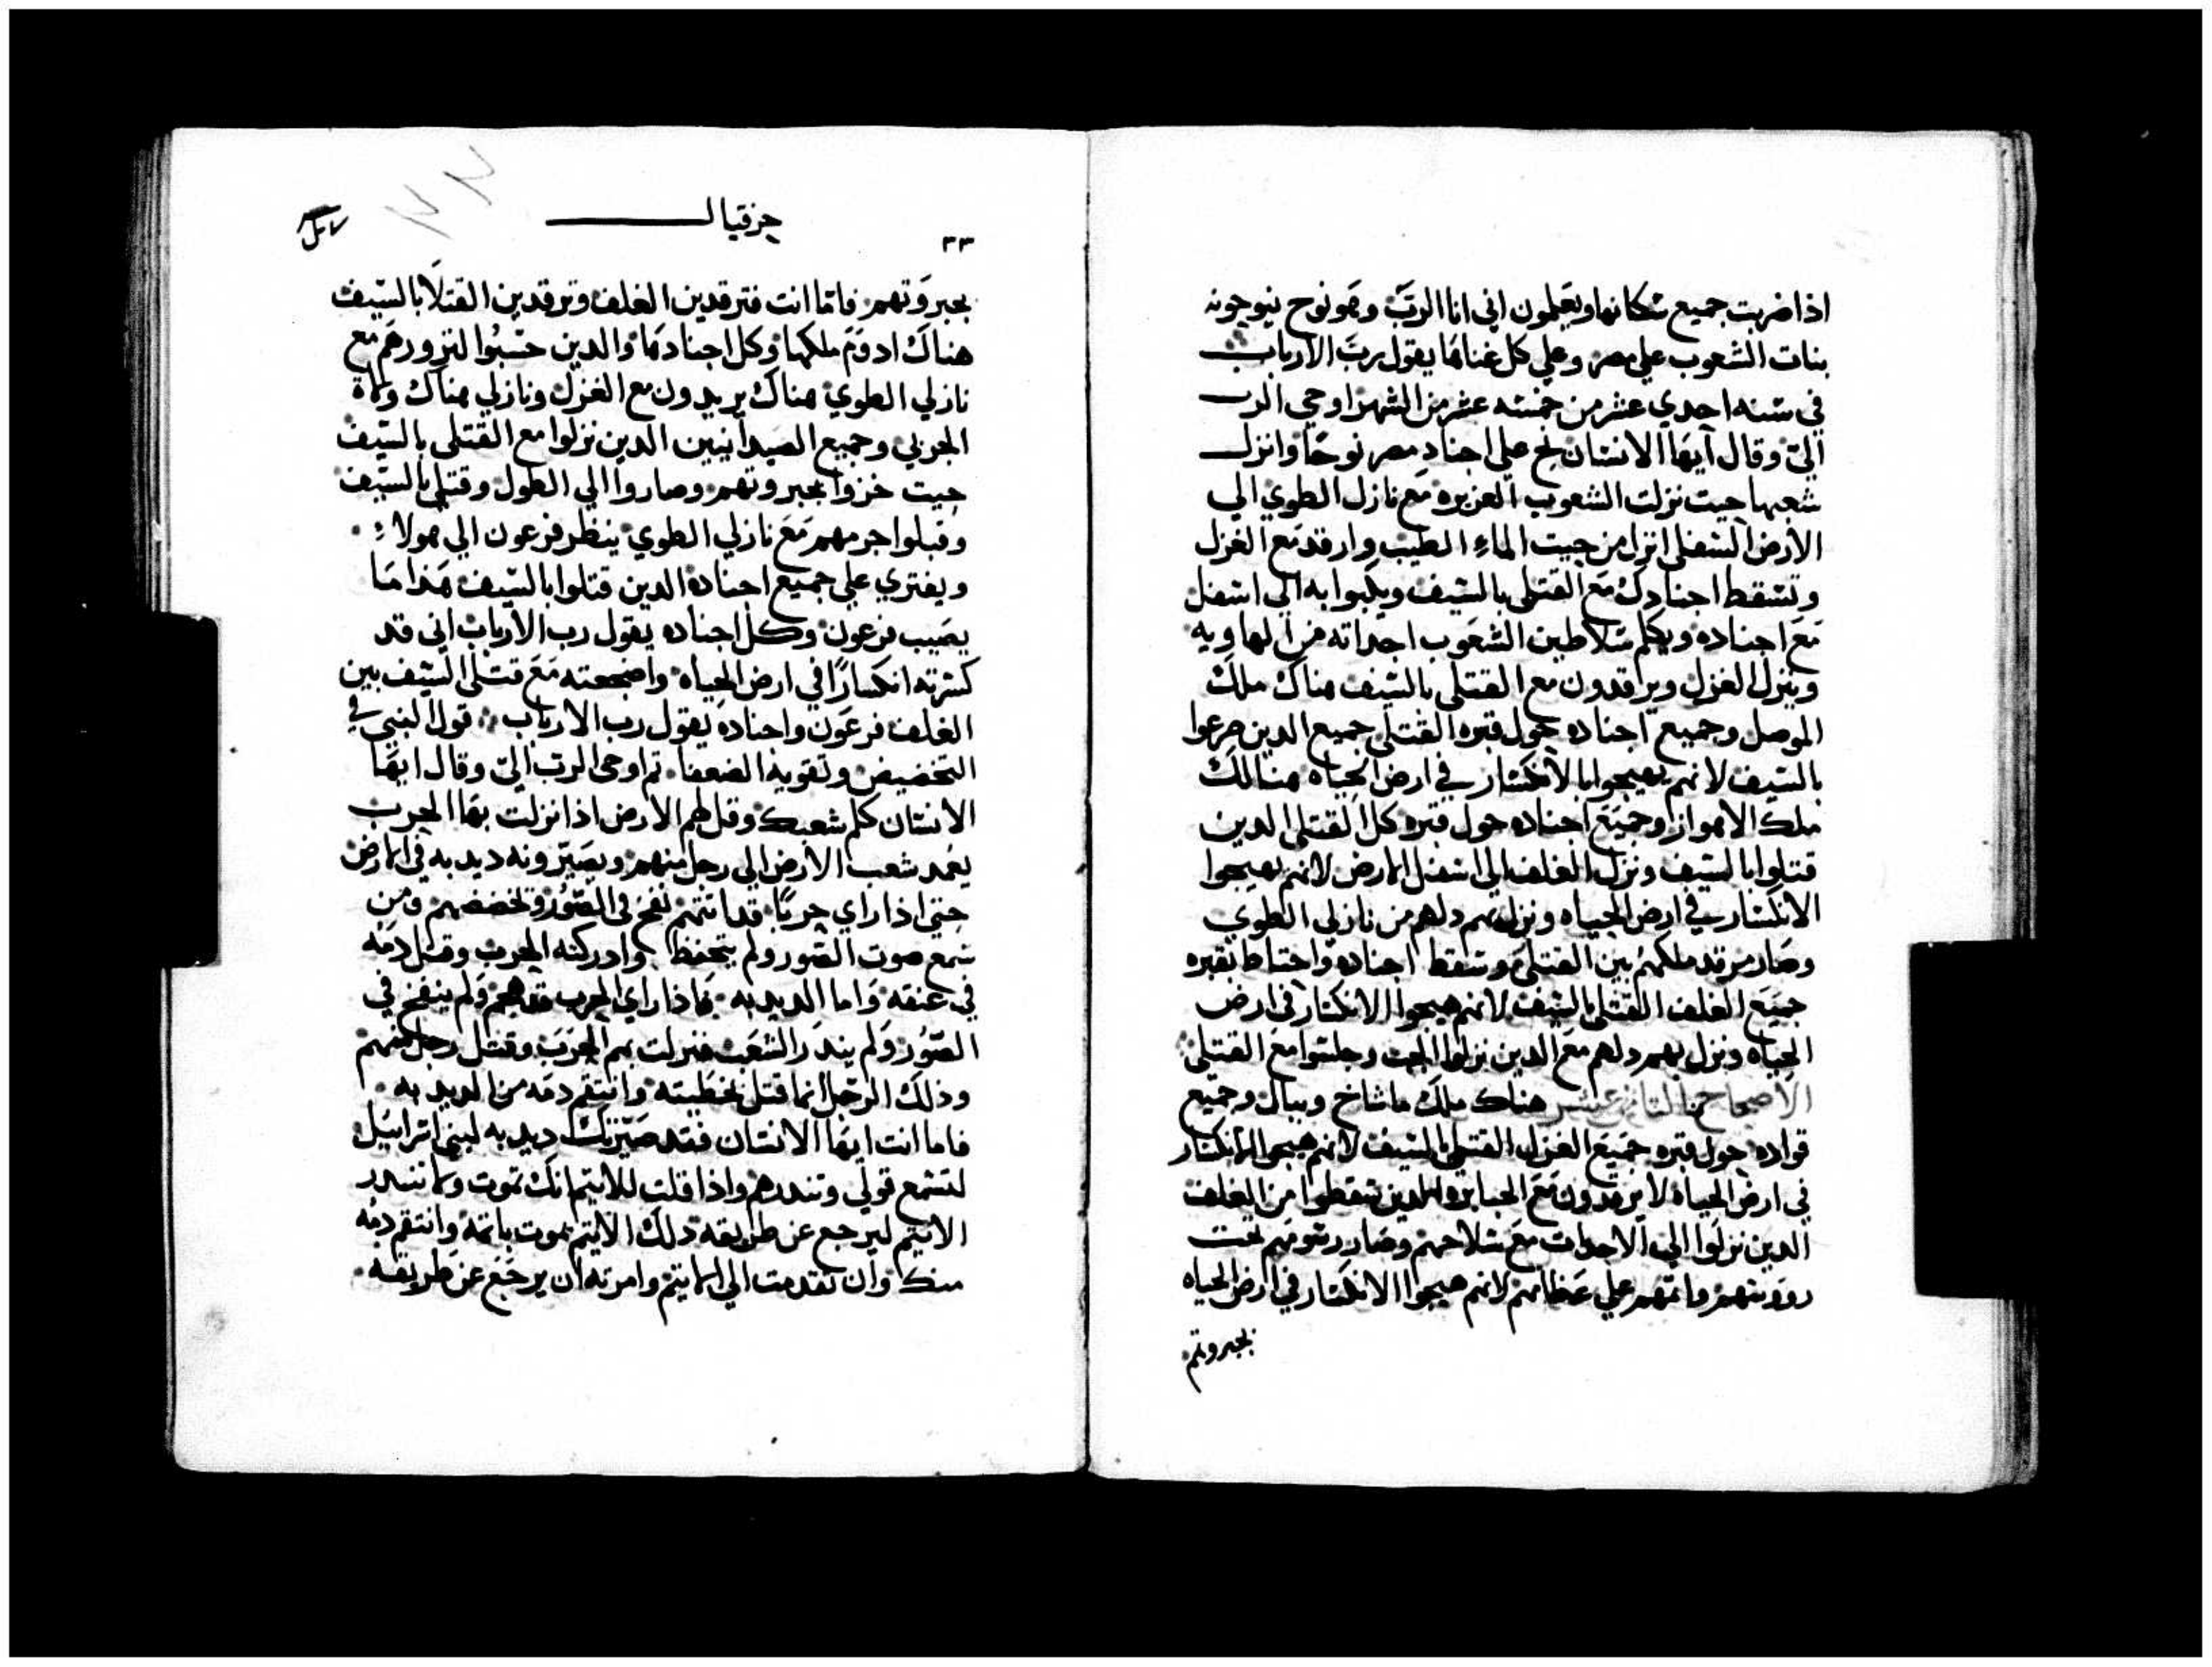 اذا ضربت جميع سكانها ويعلمون اني انا الرب وهو نوح ينوحونه
بنات الشعوب علي مصر وعلي كل غناها يقول رب الارباب
في سنه احدي عشر من خمسه عشر من الشهر اوحي الرب
الي وقال ايها الانسان نح علي اجناد مصر نوحا وانزل
شعبها حيت نزلت الشعوب العزيزه مع نازل الطوي الي
الارض السفلي انزل من حيت الماء الطيب وارقد مع الغزل
وتسقط اجنادك مع القتلي بالسيف ويكبوا به الي اسفل
مع اجناده ويكلم سلاطين الشعوب اجداته من الهاويه
وينزل الغزل ويراقدون مع القتلي بالسيف هناك ملك
الموصل وجميع اجناده حول قبره القتلي جميع الدين صرعوا
بالسيف لانهم هيجوا بالانكسار في ارض الحياه هنالك
ملك الاهواز وجميع اجناده حول قبره كل القتلي الدين
قتلوا بالسيف ونزل الغلف الي اسفل الارض لانهم هيجوا
الانكسار في ارض الحياه ونزل بهم دلهم من نازلي الطوي
وصار مرقد ملكهم بين القتلي وسقط اجناده واحتاط بقبره
جميع الغلف القتلي بالسيف لانهم هيجوا الانكسار في ارض
الحياه ونزل بهم دلهم مع الدين نزلوا الجب وجلسوا مع القتلي
الاصحاح التاني عشر هناك ملك ماشاخ وبيال وجميع
قواده حول قبره جميع الغزل القتلي بالسيف لانهم هيجوا الانكسار
في ارض الحياه لا يرقدون مع الجبابره الدين سقطوا من الغلف
الدين نزلوا الي الاجدات مع سلاحهم وصار رسومهم تحت
رووسهم واتمهم علي عظامهم لانهم هيجوا الانكسار في ارض الحياه
بجبروتهم
حزقيال
٣٣
بجبروتهم فاما انت فترقدين الغلف وترقدين القتلا بالسيف
هناك ادوم ملكها وكل اجنادها والدين حسبوا لتزورهم مع
نازلي الطوي هناك يريدون مع الغزل ونازلي هناك ولاة
الجربي وجميع الصيدانيين الدين نزلوا مع القتلي بالسيف
حيت خزوا بجبروتهم وصاروا الي الطول وقتلي بالسيف
وقبلوا جرمهم مع نازلي الطوي ينظر فرعون الي هولاء
ويفتري علي جميع اجناده الدين قتلوا بالسيف هذا ما
يصيب فرعون وكل اجناده يقول رب الارباب اني قد
كسرته انكسارا في ارض الحياه واضجعته مع قتلي السيف بين
الغلف فرعون واجناده يقول رب الارباب قول النبي في
التحضيض وتقوية الضعفا تم اوحي الرب الي وقال ايها
الانسان كلم شعبك وقل لهم الارض اذا نزلت بها الحرب
يعمد شعب الارض الي رجل منهم ويصيرونه ديدبه في الارض
حتي اذا راي حربا قد اتتهم نفخ في الصور وتحضضهم ومن
سمع صوت الصور ولم يتحفظ وادركته الحرب وقتل دمه
في عنقه واما الديدبه فاذا راي الحرب قد هجم ولم ينفخ في
الصور ولم يندر الشعب فنزلت بهم الحرب وقتل رجل منهم
وذلك الرجل انما قتل بخطيته وانتقم دمه من الديدبه
فاما انت ايها الانسان فقد صيرتك ديدبه لبني اسرائيل
لتسمع قولي وتندرهم واذا قلت للاتيم انك تموت ولا تندر
الاتيم ليرجع عن طريقه دلك الاتيم يموت باتمه وانتقم دمه
منك وان تقدمت الي الاتيم وامرته ان يرجع عن طريقه